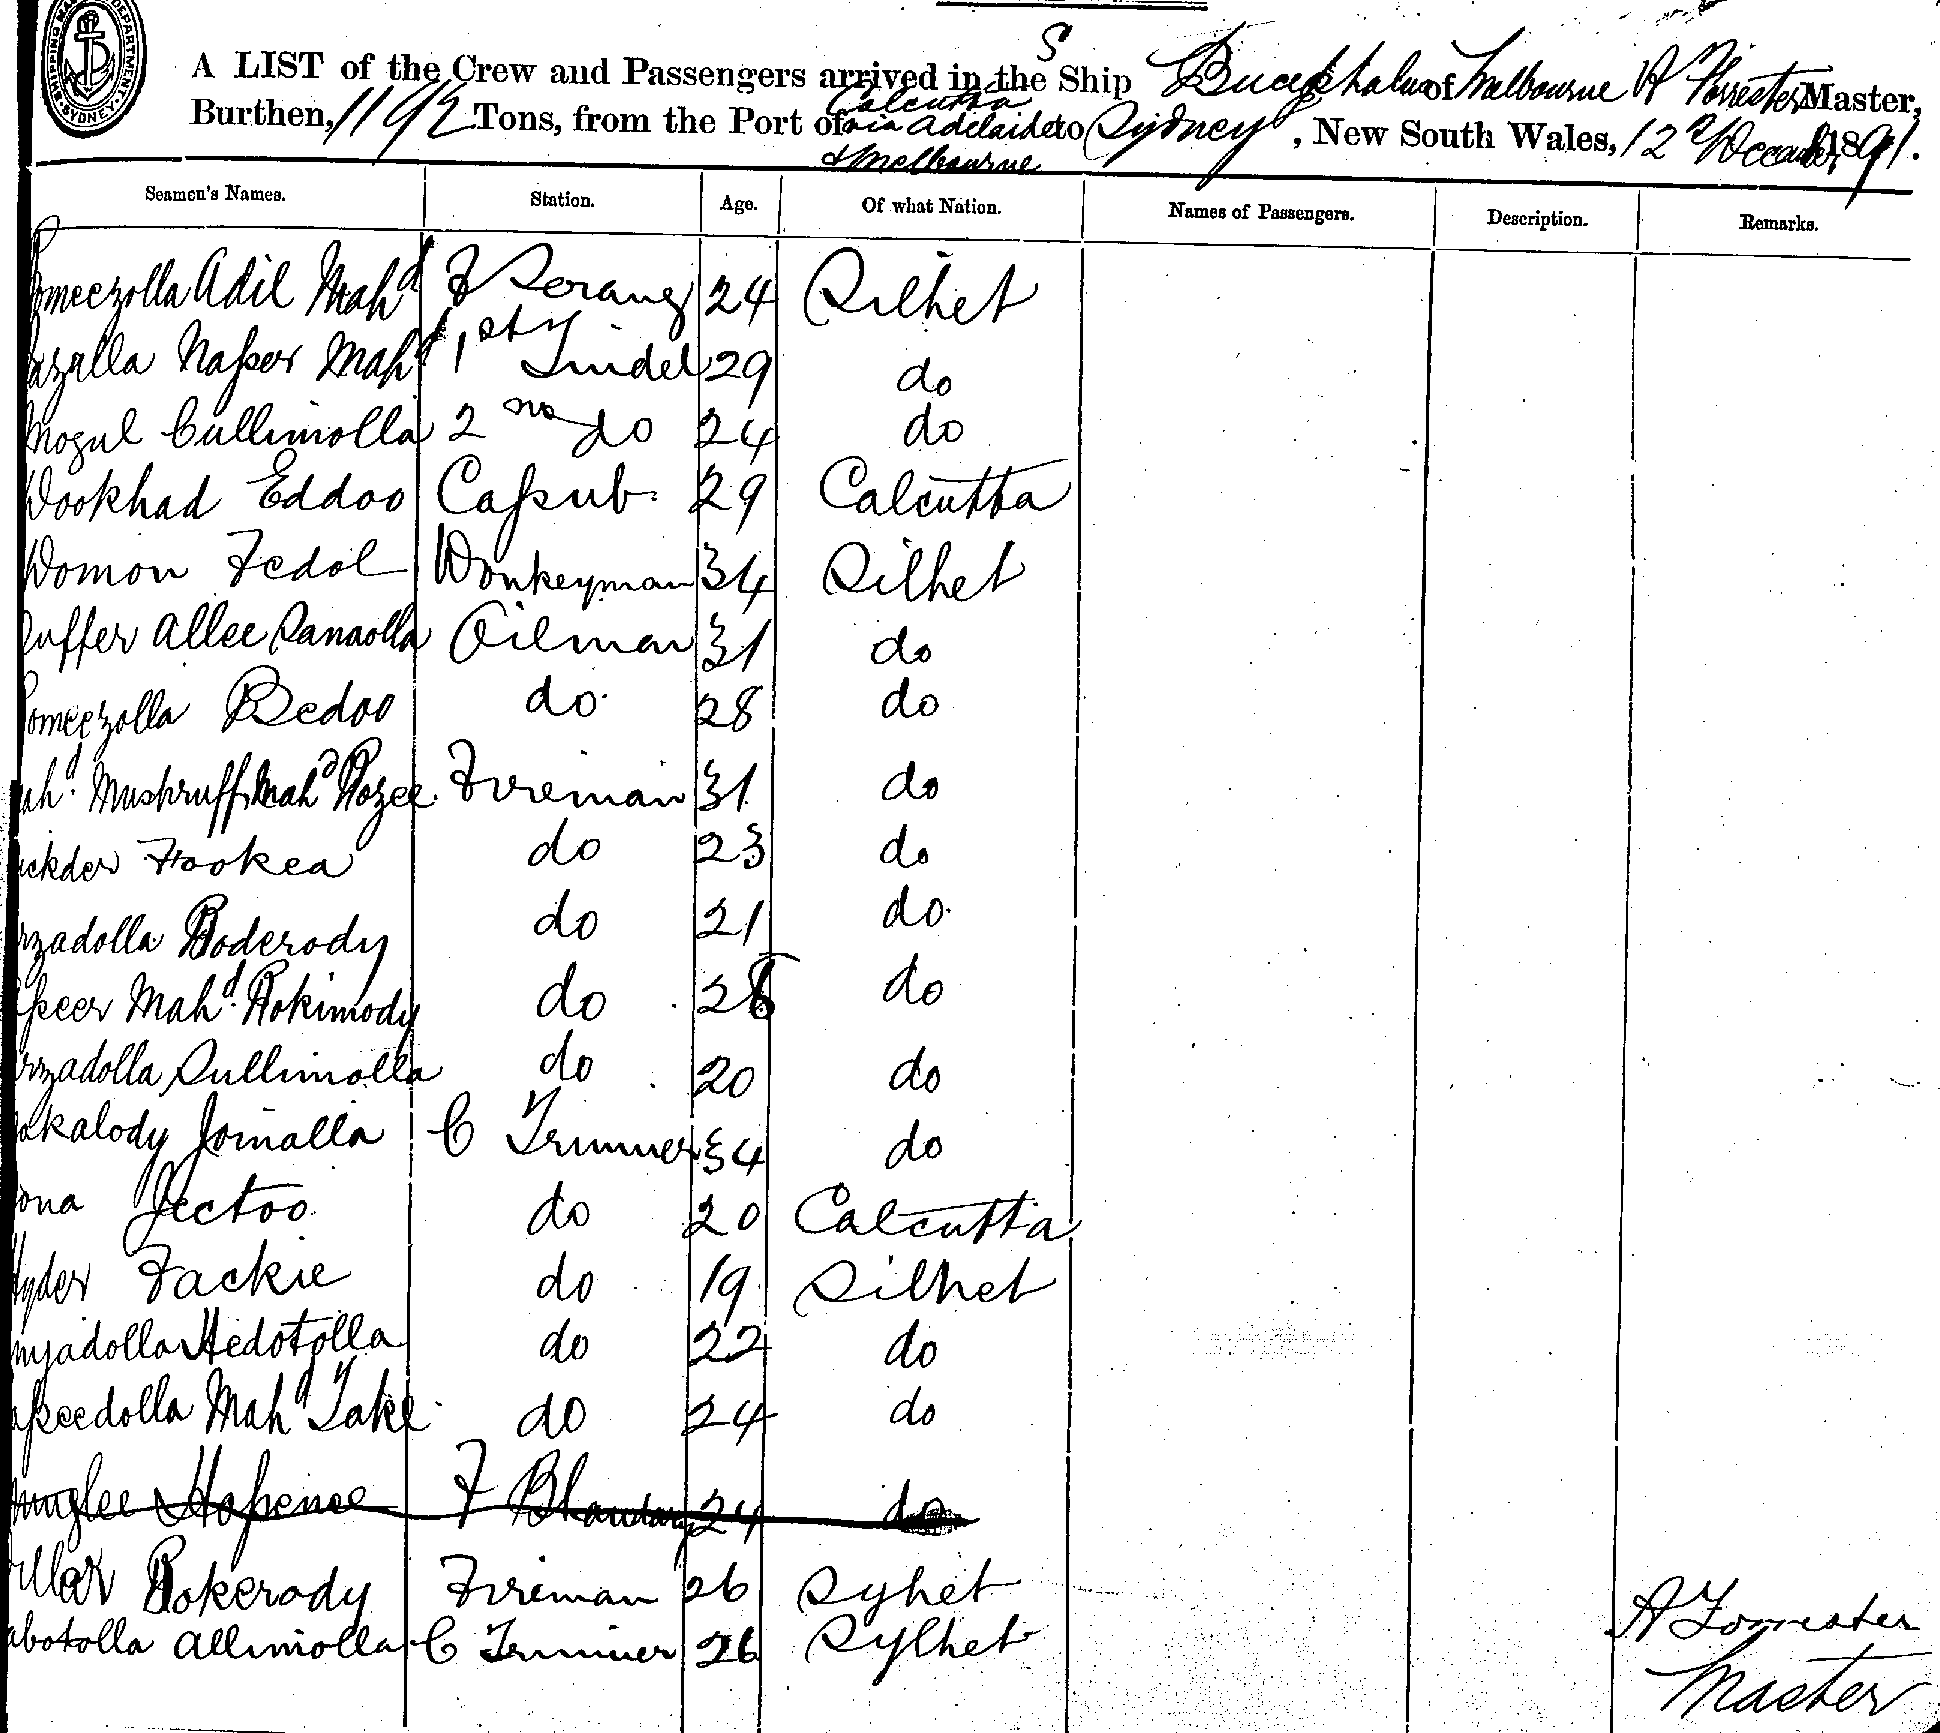 SHIPPING MA DEPARTMENT. SYDNEY
A LIST of the Crew and Passengers arrived in the S Ship Bucephalus of Melbourne A Forrester, Master,
Burthen, 1192 Tons, from the Port of Calcutta via Adelaide & Melbourne to Sydney, New South Wales, 12th December 1891.
Seamen's Names. Station. Age. Of what Nation. Names of Passengers. Description. Remarks.
omeezolla Adil Mahd F Serang 24 Silhet
azulla Nasser Mahd 1st Tindel 29 do
Mogul Cullimolla 2nd do 24 do
Dookhad Eddoo Cassub 29 Calcutta
Domon Fedol Donkeyman 34 Silhet
uffer Allee Sanaolla Oilman 31 do
omeezolla Bedoo do 28 do
ahd. Mushruff Mahd Rozee Fireman 31 do
uckder Fookea do 23 do
rzadolla Boderody do 21 do
sseer Mahd. Rokimody do 28 do
rzadolla Sullimolla do 20 do
okalody Jomalla C Trimmer 34 do
ona Jectoo do 20 Calcutta
Hyder Fackie do 19 Silhet
nyadolla Hedotolla do 22 do
asseedolla Mahd Take do 24 do
unglee Hossenee F Bhandary 24 do
Bokerody Fireman 26 Syhet
abotolla Allimolla C Trimmer 26 Sylhet
A Forrester
Master